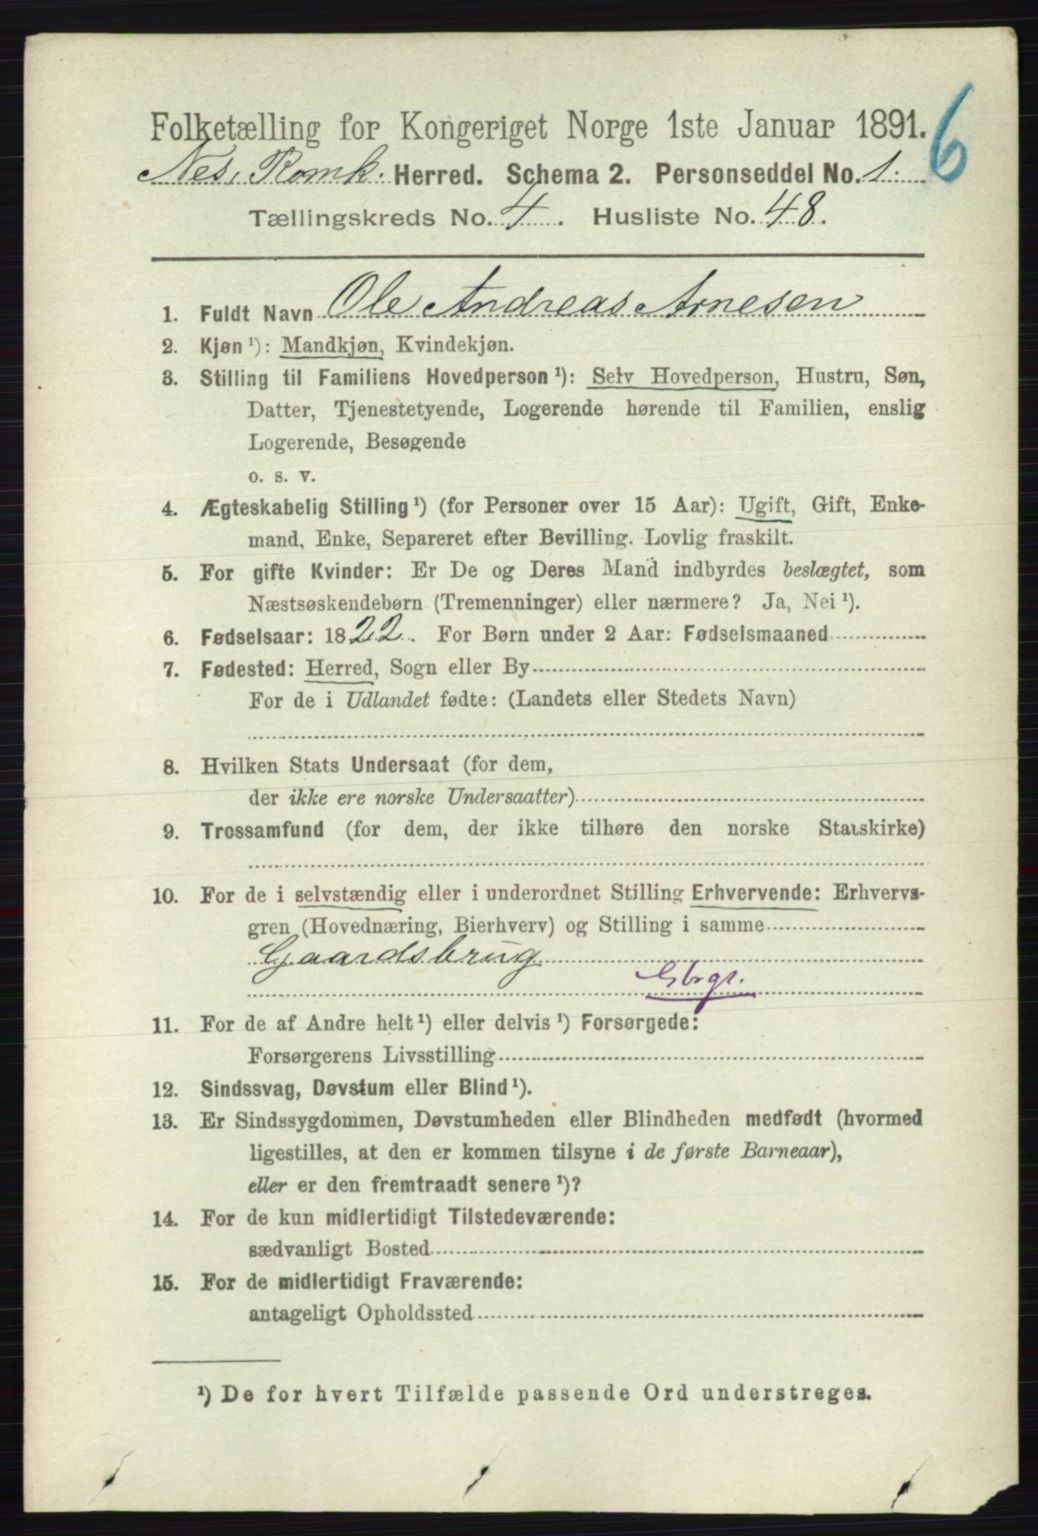 Folketælling for Kongeriget Norge 1ste Januar 1891.
6
Nes, Romk. Herred. Schema 2. Personseddel No. 1.
Tællingskreds No. 4. Husliste No. 48.
1. Fuldt Navn Ole Andreas Arnesen
2. Kjøn ¹): Mandkjøn, Kvindekjøn.
3. Stilling til Familiens Hovedperson ¹): Selv Hovedperson, Hustru, Søn,
Datter, Tjenestetyende, Logerende hørende til Familien, enslig
Logerende, Besøgende
o. s. v.
4. Ægteskabelig Stilling ¹) (for Personer over 15 Aar): Ugift, Gift, Enke-
mand, Enke, Separeret efter Bevilling. Lovlig fraskilt.
5. For gifte Kvinder: Er De og Deres Mand indbyrdes beslægtet, som
Næstsøskendebørn (Tremenninger) eller nærmere? Ja, Nei ¹).
6. Fødselsaar: 1822. For Børn under 2 Aar: Fødselsmaaned
7. Fødested: Herred, Sogn eller By
For de i Udlandet fødte: (Landets eller Stedets Navn)
8. Hvilken Stats Undersaat (for dem,
der ikke ere norske Undersaatter)
9. Trossamfund (for dem, der ikke tilhøre den norske Statskirke)
10. For de i selvstændig eller i underordnet Stilling Erhvervende: Erhvervs-
gren (Hovednæring, Bierhverv) og Stilling i samme
Gaardsbrug
Gbrgr.
11. For de af Andre helt ¹) eller delvis ¹) Forsørgede:
Forsørgerens Livsstilling
12. Sindssvag, Døvstum eller Blind ¹).
13. Er Sindssygdommen, Døvstumheden eller Blindheden medfødt (hvormed
ligestilles, at den er kommen tilsyne i de første Barneaar),
eller er den fremtraadt senere ¹)?
14. For de kun midlertidigt Tilstedeværende:
sædvanligt Bosted
15. For de midlertidigt Fraværende:
antageligt Opholdssted
¹) De for hvert Tilfælde passende Ord understreges.